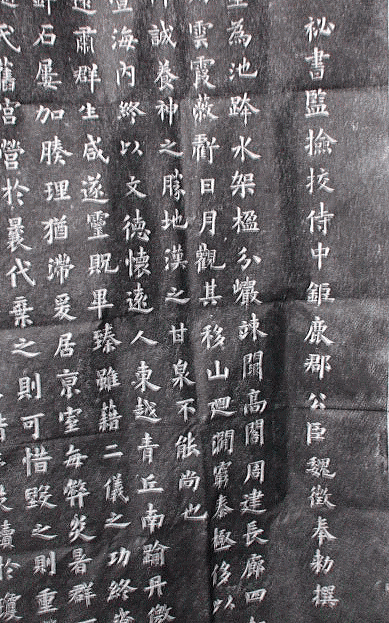 秘書監撿挍侍中鉅鹿郡公臣魏徵奉勑撰
為池跨水架楹分巖竦闕高閣周建長廊四
雲霞蔽虧日月觀其移山迴澗窮泰極侈以
誠養神之勝地漢之甘泉不能尚也
壹海內終以文德懷遠人東越青丘南踰丹徼
遠肅群生咸遂靈貺畢臻雖藉二儀之功終資
針石屢加腠理猶滯爰居京室每弊炎暑群下
氏舊宮營於曩代棄之則可惜毀之則重
茨續於瓊